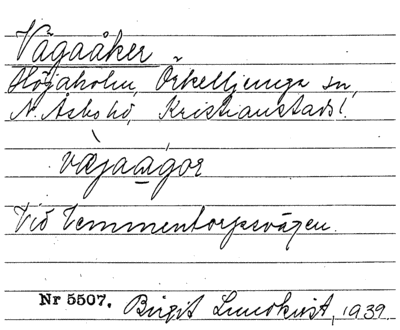 Vägaåker
Höjaholm, Örkelljunga sn,
N. Åsbo hd, Kristianstads l.
væjaagor
Vid Vemmentorpsvägen.
Nr 5507. Birgit Lundkvist, 1939.